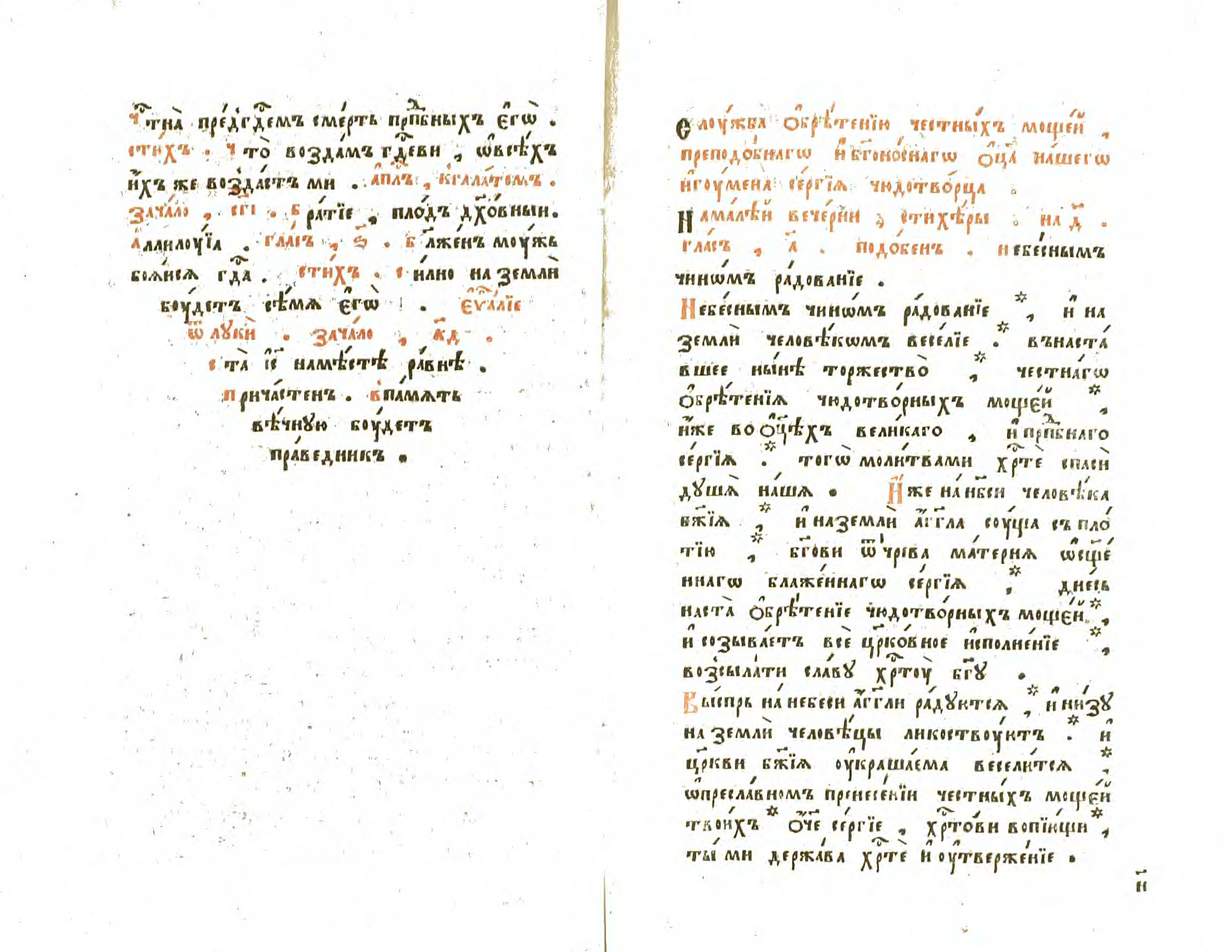 чⷭ҇тна̀ пред̾гдⷭ҇емъ сме́рть прпⷣбныхъ є҆гѡ̀ .
сти́хъ . что̀ возда́мъ гдⷭ҇еви , ѡ҆всѣ́хъ
и҆́хъ же возда́стъ ми . а҆пⷭ҇лъ , кгала́томъ .
зача́ло , сг҃і . бра́тїе , пло́дъ дх҃о́вныи .
А҆ллилоу́їа . гла́съ , ѕ҃ . бл҃же́нъ моу́жъ
боѧ́исѧ гдⷭ҇а . сти́хъ . си́лно на землѝ
боу́детъ сѣ́мѧ є҆гѡ̀ . є҆ѵⷢ҇а́лїе
ѿ лꙋкѝ . зача́ло , к҃д .
ста̀ і҆с҃ намѣ́стѣ ра́внѣ .
прича́стенъ . впа́мѧть
вѣ́чнꙋю боу́детъ
пра́ведникъ .
Слоу́жба ѻ҆брѣ́тенїю честны́хъ моще́й ,
преподо́бнагѡ и҆ бг҃оно́снагѡ ѻ҆ц҃а̀ на́шегѡ
и҆гоу́мена се́ргїѧ чюдотво́рца .
Нама́лѣй вече́рни ; стихѣ́ры . на д҃ .
гла́съ , а҃ . подо́бенъ . небе́снымъ
чинѡ́мъ ра́дованїе .
Небе́снымъ чинѡ́мъ ра́дованїе , и҆ на
землѝ человѣ́кѡмъ весе́лїе . въ наста́
вшее ны́нѣ торжество̀ , честна́гѡ
ѻ҆брѣ́тенїѧ чюдотво́рныхъ моще́й ,
и҆́же во ѻ҆ц҃ѣ́хъ вели́каго , и҆ прпⷣбнаго
се́ргїѧ . тогѡ̀ моли́твами хрⷭ҇тѐ спасѝ
дꙋшѧ̀ на́шѧ . И҆́же на нб҃си человѣ́ка
бж҃їѧ , и҆ на землѝ а҆́гг҃ла соу́ща съ пло́
тїю , бг҃ови ѿ чре́ва ма́тернѧ ѡ҆сщ҃е́
ннагѡ блаже́ннагѡ се́ргїѧ , дне́сь
наста̀ ѻ҆брѣ́тенїе чюдотво́рныхъ моще́й ,
и҆ созыва́етъ всѐ цр҃ко́вное и҆сполне́нїе ,
возсыла́ти сла́вꙋ хрⷭ҇тоу̀ бг҃ꙋ .
Вы́спрь на небеси а҆́гг҃ли ра́дꙋютсѧ , и҆ ни́зꙋ
на землѝ человѣ́цы ликоствоу́ютъ . и҆
цр҃кви бж҃їѧ оу҆краша́ема весели́тсѧ ,
ѡ҆пресла́вномъ пренесе́нїи честны́хъ моще́й
твои́хъ ѻ҆́ч҃е се́ргїе , хрⷭ҇то́ви вопїю́щи ,
ты́ ми держа́ва хрⷭ҇тѐ и҆ оу҆твержде́нїе .
н҃